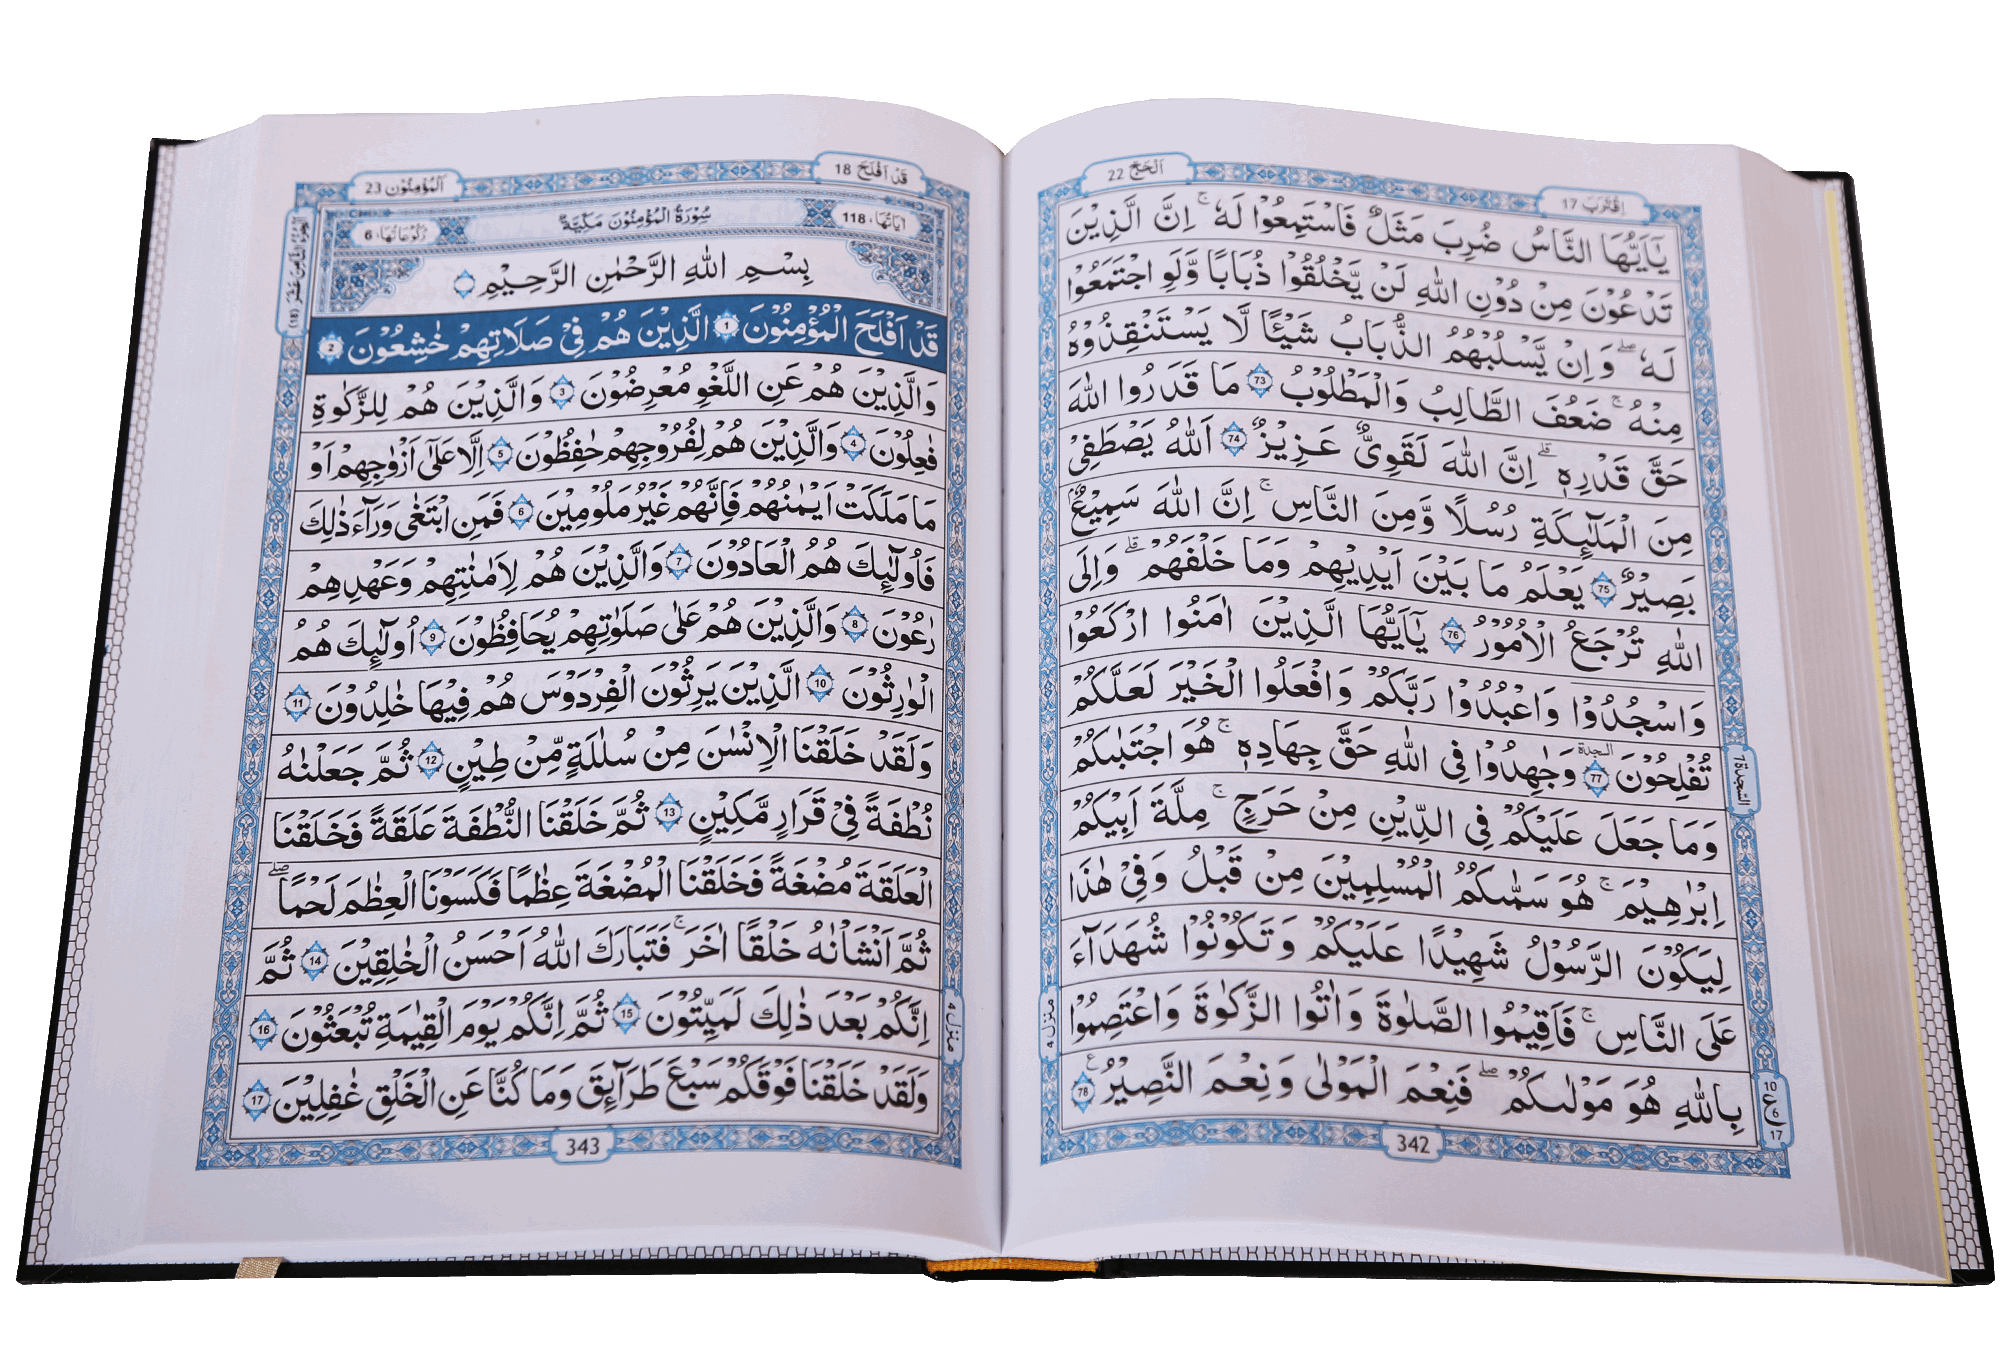 اَلْحَجّ 22
اِقْتَرَبَ 17
يٰۤاَيُّهَا النَّاسُ ضُرِبَ مَثَلٌ فَاسْتَمِعُوْا لَهٗ ۚ اِنَّ الَّذِيْنَ
تَدْعُوْنَ مِنْ دُوْنِ اللّٰهِ لَنْ يَّخْلُقُوْا ذُبَابًا وَّلَوِ اجْتَمَعُوْا
لَهٗ ؕ وَاِنْ يَّسْلُبْهُمُ الذُّبَابُ شَيْـًٔا لَّا يَسْتَنْقِذُوْهُ
مِنْهُ ۚ ضَعُفَ الطَّالِبُ وَالْمَطْلُوْبُ 73 مَا قَدَرُوا اللّٰهَ
حَقَّ قَدْرِهٖ ۗ اِنَّ اللّٰهَ لَقَوِيٌّ عَزِيْزٌ 74 اَللّٰهُ يَصْطَفِيْ
مِنَ الْمَلٰٓئِكَةِ رُسُلًا وَّمِنَ النَّاسِ ۚ اِنَّ اللّٰهَ سَمِيْعٌۢ
بَصِيْرٌ 75 يَعْلَمُ مَا بَيْنَ اَيْدِيْهِمْ وَمَا خَلْفَهُمْ ۗ وَاِلَى
اللّٰهِ تُرْجَعُ الْاُمُوْرُ 76 يٰۤاَيُّهَا الَّذِيْنَ اٰمَنُوا ارْكَعُوْا
وَاسْجُدُوْا وَاعْبُدُوْا رَبَّكُمْ وَافْعَلُوا الْخَيْرَ لَعَلَّكُمْ
تُفْلِحُوْنَ السجدة 77 وَجٰهِدُوْا فِي اللّٰهِ حَقَّ جِهَادِهٖ ۚ هُوَ اجْتَبٰىكُمْ
السجدة 7
وَمَا جَعَلَ عَلَيْكُمْ فِي الدِّيْنِ مِنْ حَرَجٍ ۚ مِلَّةَ اَبِيْكُمْ
اِبْرٰهِيْمَ ۚ هُوَ سَمّٰىكُمُ الْمُسْلِمِيْنَ مِنْ قَبْلُ وَفِيْ هٰذَا
لِيَكُوْنَ الرَّسُوْلُ شَهِيْدًا عَلَيْكُمْ وَتَكُوْنُوْا شُهَدَآءَ
عَلَى النَّاسِ ۚ فَاَقِيْمُوا الصَّلٰوةَ وَاٰتُوا الزَّكٰوةَ وَاعْتَصِمُوْا
منزل 4
بِاللّٰهِ هُوَ مَوْلٰىكُمْ ۖ فَنِعْمَ الْمَوْلٰى وَنِعْمَ النَّصِيْرُ ع 78
10
ع 6
17
342
قَدْ اَفْلَحَ 18
اَلْمُؤْمِنُوْن 23
اٰيَاتُهَا، 118
سُوْرَةُ الْمُؤْمِنُوْنَ مَكِّيَّةٌ
رُكُوْعَاتُهَا، 6
الجزء الثامن عشر (18)
بِسْمِ اللّٰهِ الرَّحْمٰنِ الرَّحِيْمِ
قَدْ اَفْلَحَ الْمُؤْمِنُوْنَ 1 الَّذِيْنَ هُمْ فِيْ صَلَاتِهِمْ خٰشِعُوْنَ 2
وَالَّذِيْنَ هُمْ عَنِ اللَّغْوِ مُعْرِضُوْنَ 3 وَالَّذِيْنَ هُمْ لِلزَّكٰوةِ
فٰعِلُوْنَ 4 وَالَّذِيْنَ هُمْ لِفُرُوْجِهِمْ حٰفِظُوْنَ 5 اِلَّا عَلٰٓى اَزْوٰجِهِمْ اَوْ
مَا مَلَكَتْ اَيْمٰنُهُمْ فَاِنَّهُمْ غَيْرُ مَلُوْمِيْنَ 6 فَمَنِ ابْتَغٰى وَرَآءَ ذٰلِكَ
فَاُولٰٓئِكَ هُمُ الْعَادُوْنَ 7 وَالَّذِيْنَ هُمْ لِاَمٰنٰتِهِمْ وَعَهْدِهِمْ
رٰعُوْنَ 8 وَالَّذِيْنَ هُمْ عَلٰى صَلَوٰتِهِمْ يُحَافِظُوْنَ 9 اُولٰٓئِكَ هُمُ
الْوٰرِثُوْنَ 10 الَّذِيْنَ يَرِثُوْنَ الْفِرْدَوْسَ هُمْ فِيْهَا خٰلِدُوْنَ 11
وَلَقَدْ خَلَقْنَا الْاِنْسٰنَ مِنْ سُلٰلَةٍ مِّنْ طِيْنٍ 12 ثُمَّ جَعَلْنٰهُ
نُطْفَةً فِيْ قَرَارٍ مَّكِيْنٍ 13 ثُمَّ خَلَقْنَا النُّطْفَةَ عَلَقَةً فَخَلَقْنَا
الْعَلَقَةَ مُضْغَةً فَخَلَقْنَا الْمُضْغَةَ عِظٰمًا فَكَسَوْنَا الْعِظٰمَ لَحْمًا ۖ
ثُمَّ اَنْشَاْنٰهُ خَلْقًا اٰخَرَ ۚ فَتَبَارَكَ اللّٰهُ اَحْسَنُ الْخٰلِقِيْنَ 14 ثُمَّ
اِنَّكُمْ بَعْدَ ذٰلِكَ لَمَيِّتُوْنَ 15 ثُمَّ اِنَّكُمْ يَوْمَ الْقِيٰمَةِ تُبْعَثُوْنَ 16
منزل 4
وَلَقَدْ خَلَقْنَا فَوْقَكُمْ سَبْعَ طَرَآئِقَ وَمَا كُنَّا عَنِ الْخَلْقِ غٰفِلِيْنَ 17
343